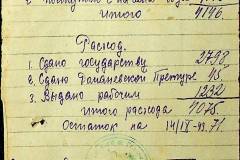 Итого 4146.
Расход.
1. Сдано государству 2798
2. Сдано 45.
3. Выдано рабочим 1232
Итого расхода 4075.
Остаток на 14/IV-43. 71.